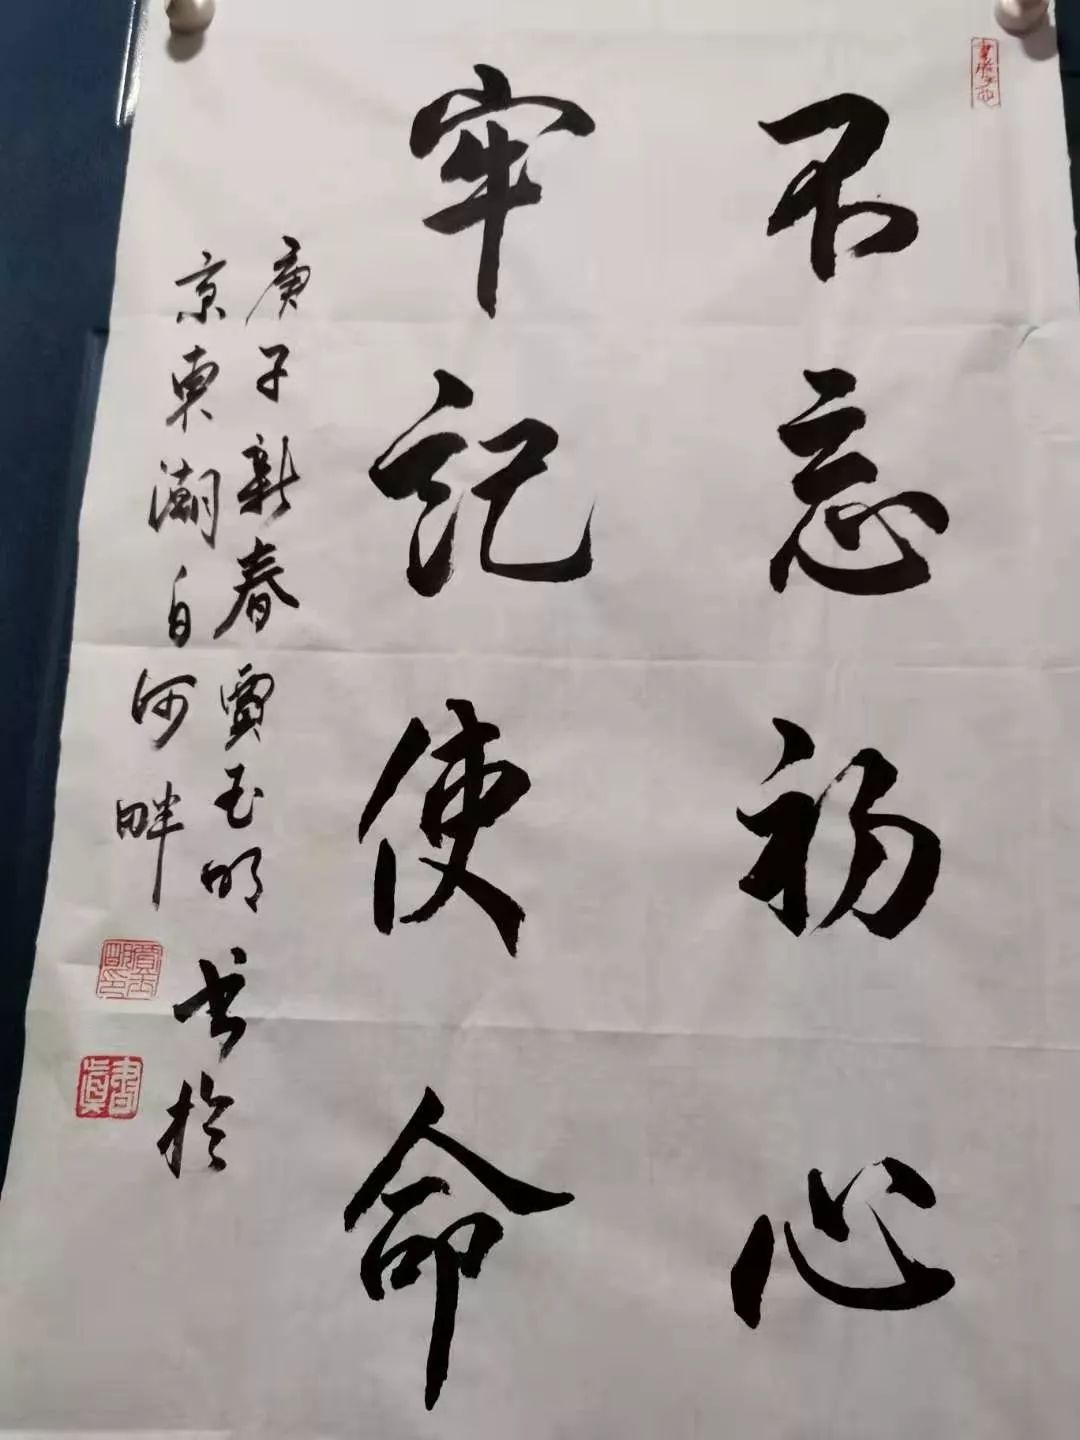 不忘初心
牢记使命
庚子新春賈玉明书於
京東潮白河畔